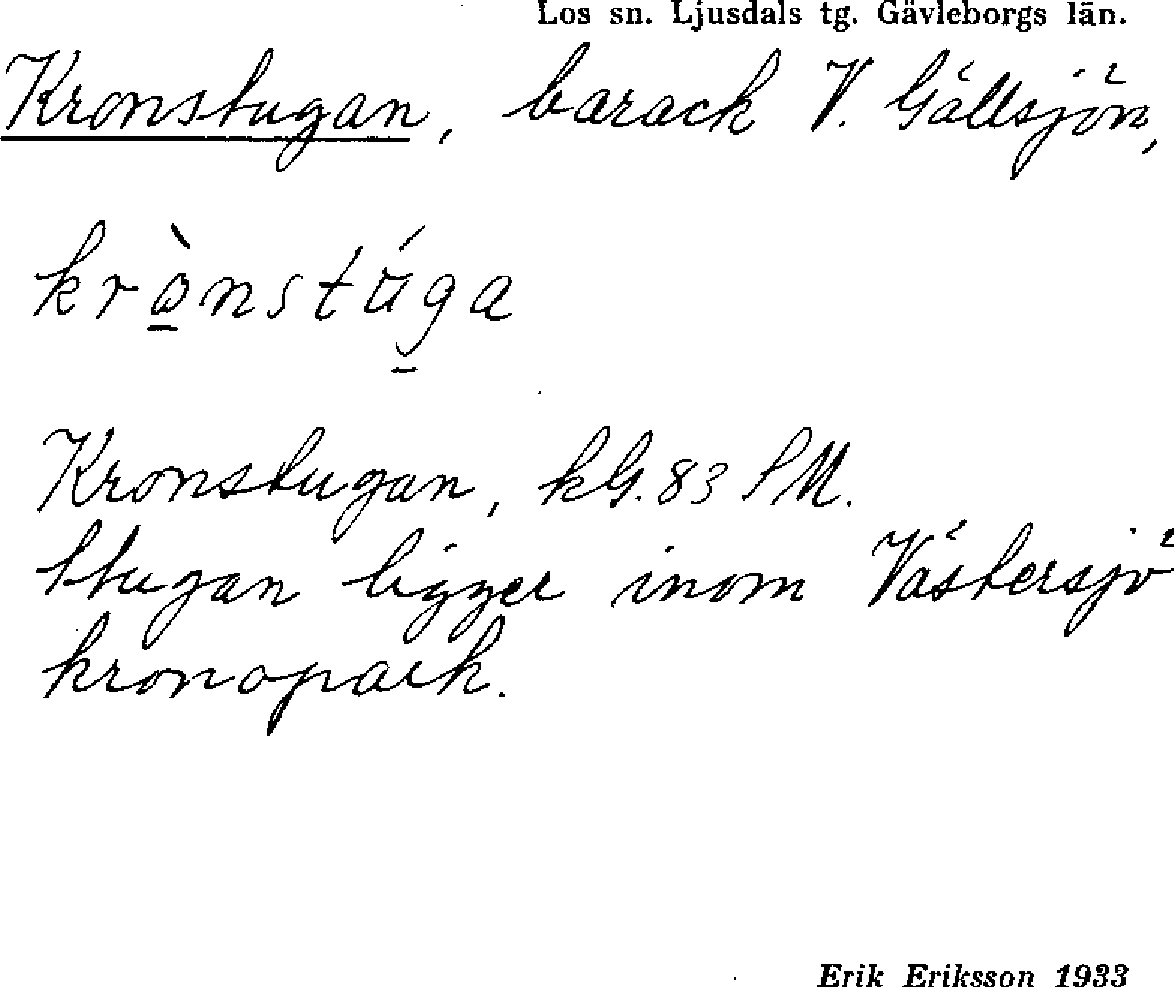 Los sn. Ljusdals tg. Gävleborgs län.
Kronstugan, barack V. Gällsjön,
krò̱nstúga
Kronstugan, kG. 83 SM.
Stugan ligger inom Västersjö
kronopark.
Erik Eriksson 1933